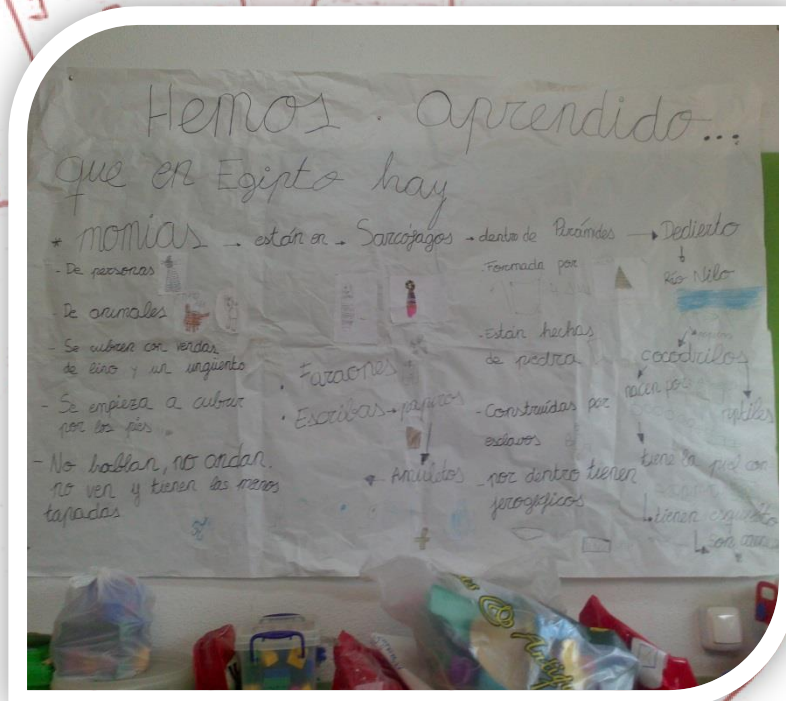 Hemos aprendido...
que en Egipto hay
* momias → están en → Sarcófagos → dentro de Pirámides → Dedierto
- De personas
- De animales
- Se cubren con vendas
de lino y un ungüento
- Se empieza a cubrir
por los pies.
- No hablan, no andan.
no ven y tienen las manos
tapadas
. Faraones
. Escribas → papiros
Amuletos
- Formada por
- están hechas
de piedra
- Construídas por
esclavos
- por dentro tienen
jeroglíficos
Río Nilo
cocodrilos
nacen por
reptiles
tiene la piel con
tienen esqueleto
son